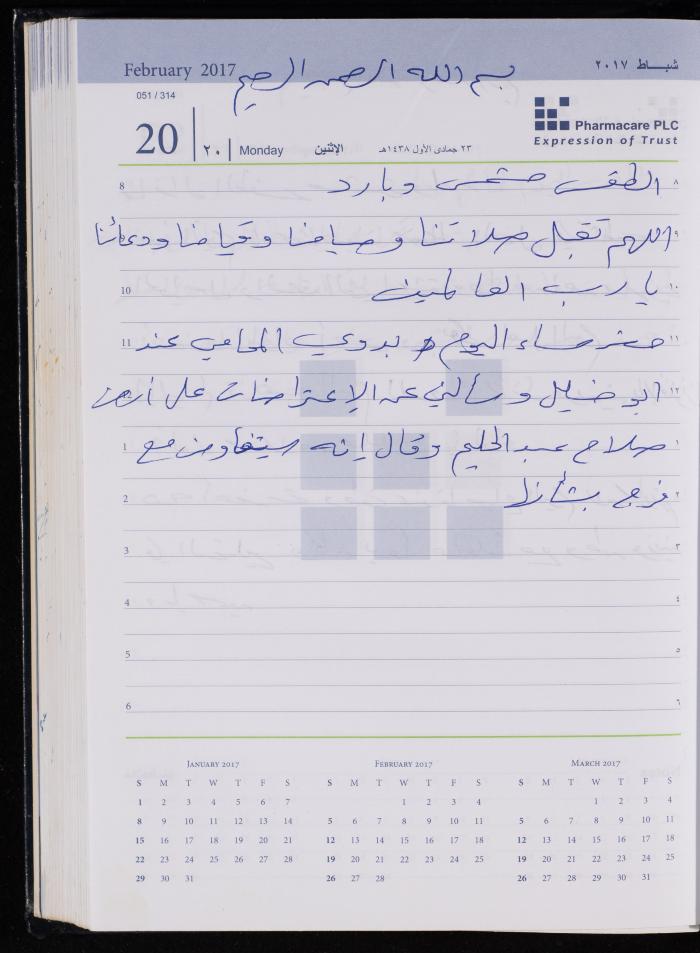 February 2017
بسم الله الرحمن الرحيم
شبـــاط ٢٠١٧
051 / 314
20
٢٠
Monday
الإثنين
٢٣ جمادى الأول ١٤٣٨هـ
Pharmacare PLC
Expression of Trust
8 الطقس مشمس وبارد ٨
اللهم تقبل صلاتنا وصيامنا وقيامنا ودعائنا ٩
10 يا رب العالمين ١٠
11 حضر مساء اليوم بدوي المحامي عند ١١
ابو خليل وسألني عن الإعتراضات على أرض ١٢
1 صلاح عبد الحليم وقال إنه سيتفاوض مع ١
2 فرج بشأنها ٢
3 ٣
4 ٤
5 ٥
6 ٦
JANUARY 2017
S M T W T F S
1 2 3 4 5 6 7
8 9 10 11 12 13 14
15 16 17 18 19 20 21
22 23 24 25 26 27 28
29 30 31
FEBRUARY 2017
S M T W T F S
1 2 3 4
5 6 7 8 9 10 11
12 13 14 15 16 17 18
19 20 21 22 23 24 25
26 27 28
MARCH 2017
S M T W T F S
1 2 3 4
5 6 7 8 9 10 11
12 13 14 15 16 17 18
19 20 21 22 23 24 25
26 27 28 29 30 31